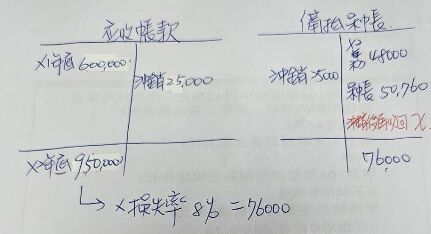 應收帳款
備抵呆帳
X1年底 600,000
沖銷 25,000
沖銷 25000
X2初 48000
呆帳 50,760
沖銷後再收回 X
X2年底 950,000
76000
↳ X 損失率 8% = 76000